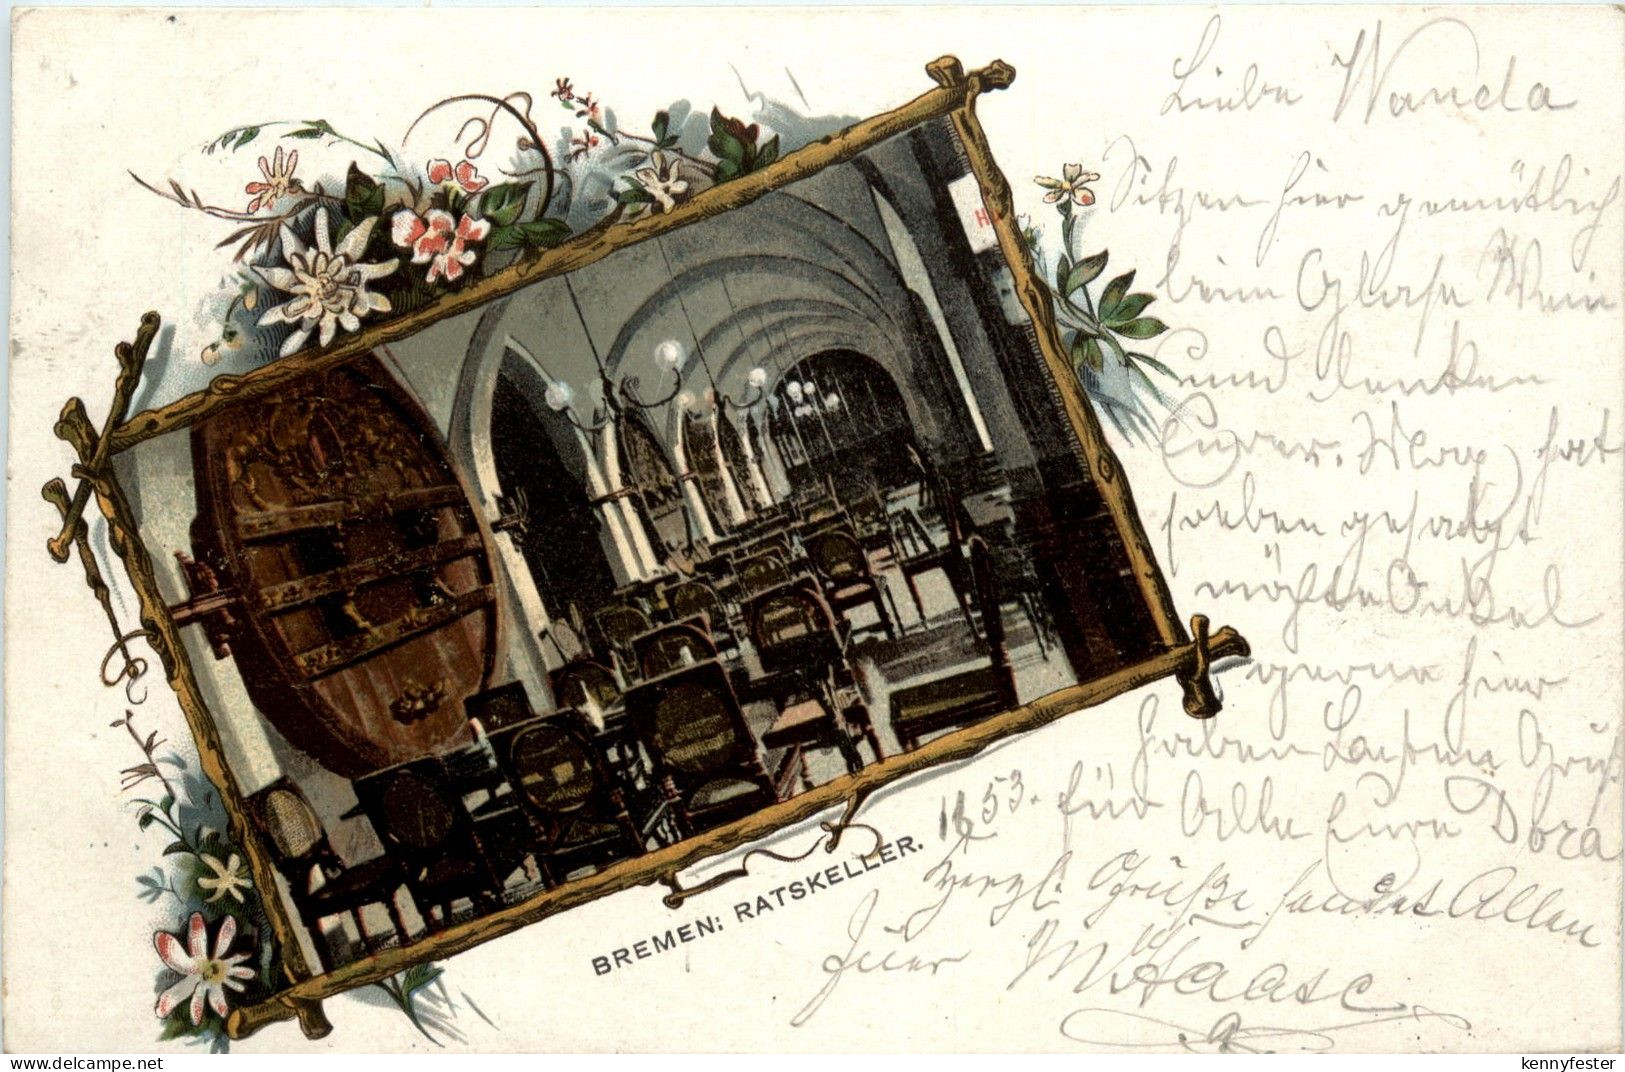 Liebe Wanda
Sitzen hier gemütlich
beim Glase Wein
und denken
Eurer. Max hat
soeben gesagt
möchte Onkel
gerne hier
haben Grüße
für Alle Eure Dora
Herzl. Grüße sendet Allen
Euer M Haase
BREMEN: RATSKELLER.
1653.
H
delcampe.net
kennyfester